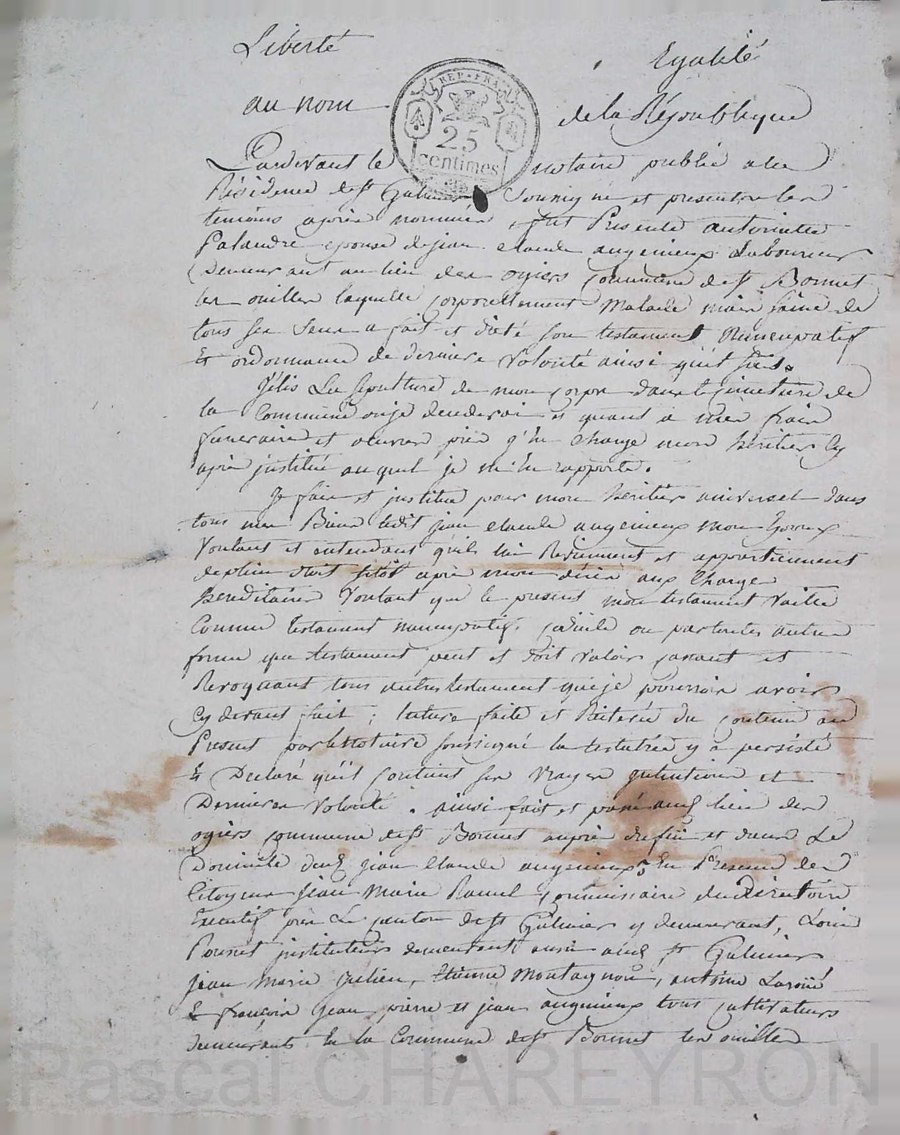 Liberté Egalité
au nom de la République
REP. FRA.
25
centimes
Pardevant le notaire public a la
Résidence de St Galmier Soussigné et présents les
temoins après nommés, fut Presente antoinette
Palandre epouse de jean claude augenieux Laboureur
Demeurant au lieu des ogiers Commune de St Bonnet
les ouilles laquelle corporellement Malade mais saine de
tous ses sens a fait et dicté son testament Nuncupatif
Et ordonnance de derniere Volonté ainsi quil suit.
J'élis La sepulture de mon corps dans le simetiere de
la Commune ou je decederai et quant à mes frais
funeraires et œuvres pies j'en Charge mon héritier cy
après justitué auquel je m'en rapporte.
Je fais et jnstitue pour mon heritier universel dans
tous mes Biens ledit jean claude augenieux mon Epoux
Voulant et entendant qu'ils lui Reviennent et appartiennent
de plein droit sitôt après mon décés aux Charges
hereditaires Voulant que le present mon testament Vaille
Comme testament nuncupatif, codicile ou par toutes autres
forme que testament peut et doit valoir cassant et
Revoquant tous autres testament que je pourrois avoir
Cy devant fait; lecture faite et Réiterée du contenu au
Present par le Notaire soussigné la testatrice y a persisté
Et Declaré qu'il contient ses Vrayes jntentions et
Dernieres Volonté. ainsi fait et passé aud. lieu des
ogiers commune de St Bonnet après midi et dans Le
Domicile dud. jean claude augenieux En Presence des
Citoyens jean Marie Ravel commissaire du directoire
Executif près Le canton de St Galmier y demeurant, Louis
Pournet jnstituteur demeurant aussi aud. St Galmier
jean marie Julien, Etienne Montagnon, antoine
& françois Jean pierre et jean augenieux tous cultivateurs
demeurants En la Commune de St Bonnet les ouilles
Pascal CHAREYRON